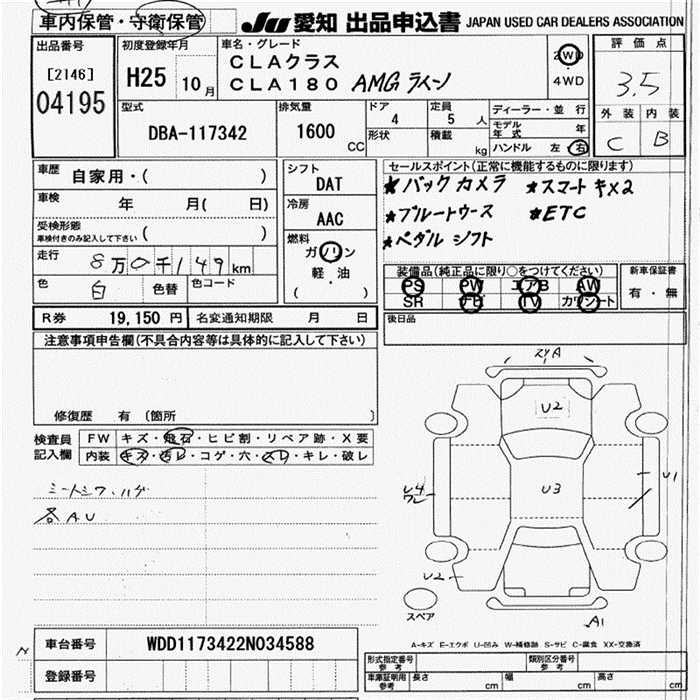 車内保管・守衛保管
JU 愛知 出品申込書 JAPAN USED CAR DEALERS ASSOCIATION
出品番号
[2146]
04195
初度登録年月
H25 10月
車名・グレード
CLAクラス
CLA180 AMG ライン
2WD
4WD
評価点
3.5
外装 内装
C B
型式
DBA-117342
排気量
1600 CC
ドア
4
形状
定員
5 人
積載
kg
ディーラー・並行
モデル年式 年
ハンドル 左 右
車歴
自家用・( )
車検
年 月( 日)
受検形態
車検付きのみ記入して下さい ( )
走行
8万0千149km
色
白 色替 色コード
シフト
DAT
冷房
AAC
燃料
ガソリン
軽・油
( )
セールスポイント(正常に機能するものに限ります)
★バックカメラ ★スマートキx2
★ブルートゥース ★ETC
★ペダルシフト
装備品(純正品に限り○をつけてください)
PS PW エアB AW
SR TV カワシート
新車保証書
有・無
後日品
R券 19,150円 名変通知期限 月 日
注意事項申告欄(不具合内容等は具体的に記入して下さい)
修復歴 有 〔箇所
検査員記入欄
FW キズ・飛石・ヒビ割・リペア跡・X要
内装 キズ・汚レ・コゲ・穴・スレ・キレ・破レ
シートシワ・ハゲ
各AU
スリA
U2
U3
U4
ワレ
U1
U2
スペア
A1
A-キズ E-エクボ U-凹み W-補修跡 S-サビ C-腐食 XX-交換済
車台番号 WDD1173422N034588
登録番号
形式指定番号 参考
類別区分番号 参考
車庫証明用 参考
長さ cm 幅 cm 高さ cm